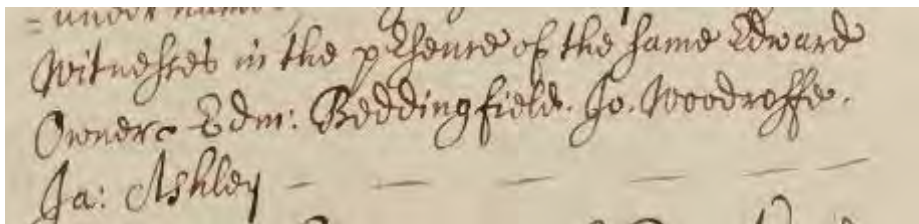 = under
Witnesses in the pſence of the same Edward
Owner Edm: Beddingfield. Jo. Woodroffe.
Ja: Ashley